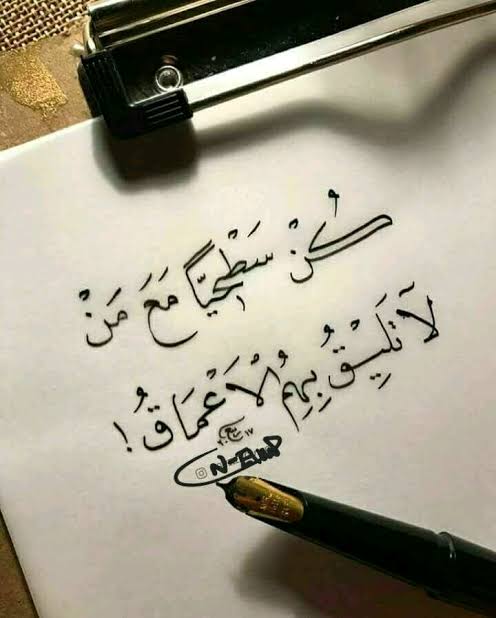 كُنْ سَطْحِيًّا مَعَ مَنْ
لَا تَلِيقُ بِهِمُ الْأَعْمَاقُ !